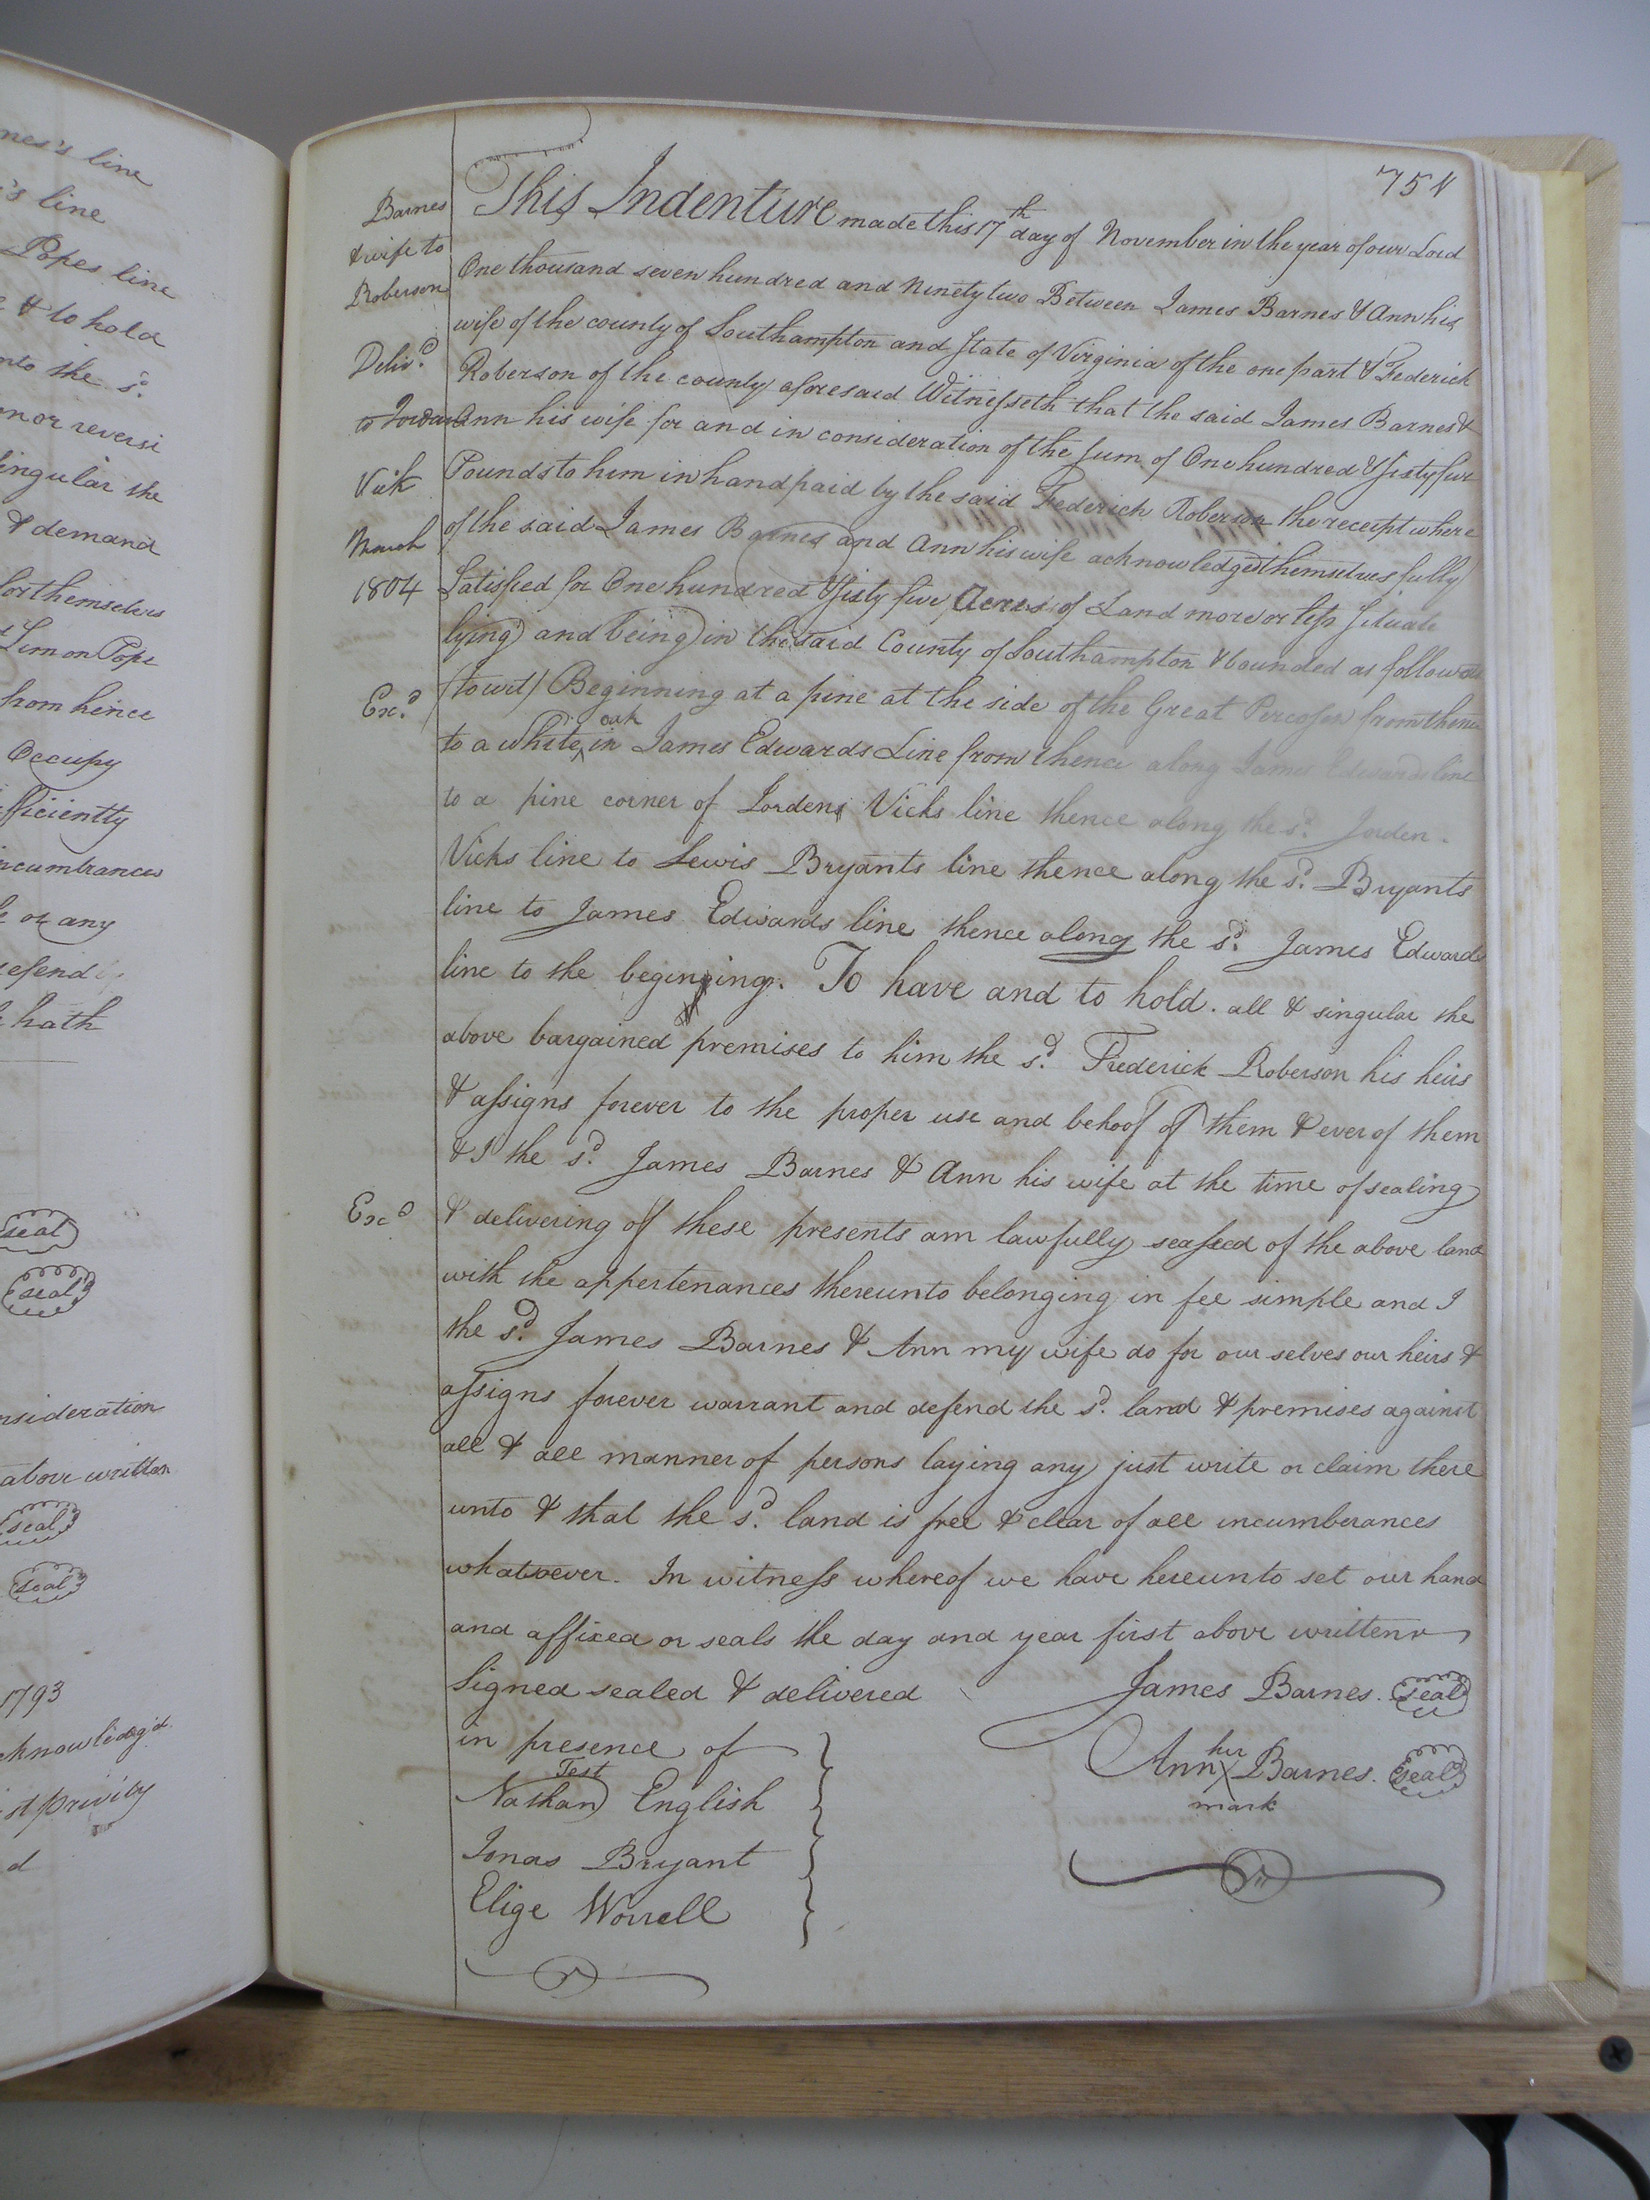 nes's line
's line
Popes line
& to hold
nto the sd.
on or reversi
ingular the
& demand
for themselves
Simon Pope
from hence
Occupy
fficiently
ncumbrances
or any
efend
hath
seal
seal
nsideration
above written
seal
seal
1793
cknowledg'd
st privily
d
754
Barnes
& wife to
Roberson
Delivd.
to Jordan
Vick
March
1804
Exd.
Excd
This Indenture made this 17th day of November in the year of our Lord
One thousand seven hundred and Ninety two Between James Barnes & Ann his
wife of the county of Southampton and State of Virginia of the one part & Frederick
Roberson of the county aforesaid Witnesseth that the said James Barnes &
Ann his wife for and in consideration of the Sum of One hundred & sixty five
Pounds to him in hand paid by the said Frederick Roberson the receept where
of the said James Barnes and Ann his wife acknowledged themselves fully
Satisfied for One hundred & sixty five Acres of Land more or less situate
lying and being in the said County of Southampton & bounded as follows
(to wit) Beginning at a pine at the side of the Great Percoson from thence
to a White oak in James Edwards Line from thence along James Edwards line
to a pine corner of Jordens Vicks line thence along the sd. Jorden
Vicks line to Lewis Bryants line thence along the sd. Bryants
line to James Edwards line thence along the sd. James Edwards
line to the begenning. To have and to hold. all & singular the
above bargained premises to him the sd. Frederick Roberson his heirs
& assigns forever to the proper use and behoof of them & ever of them
& I the sd. James Barnes & Ann his wife at the time of sealing
& delivering of these presents am lawfully seassed of the above land
with the appertenances thereunto belonging in fee simple and I
the sd. James Barnes & Ann my wife do for our selves our heirs &
assigns forever warrant and defend the sd. land & premises against
all & all manner of persons laying any just write or claim there
unto & that the sd. land is free & clear of all incumberances
whatsoever. In witness whereof we have hereunto set our hand
and affixed or seals the day and year first above written
Signed sealed & delivered
in presence of
Test
Nathan English
Jonas Bryant
Elige Worrell
James Barnes. seal
Ann her X mark Barnes. seal